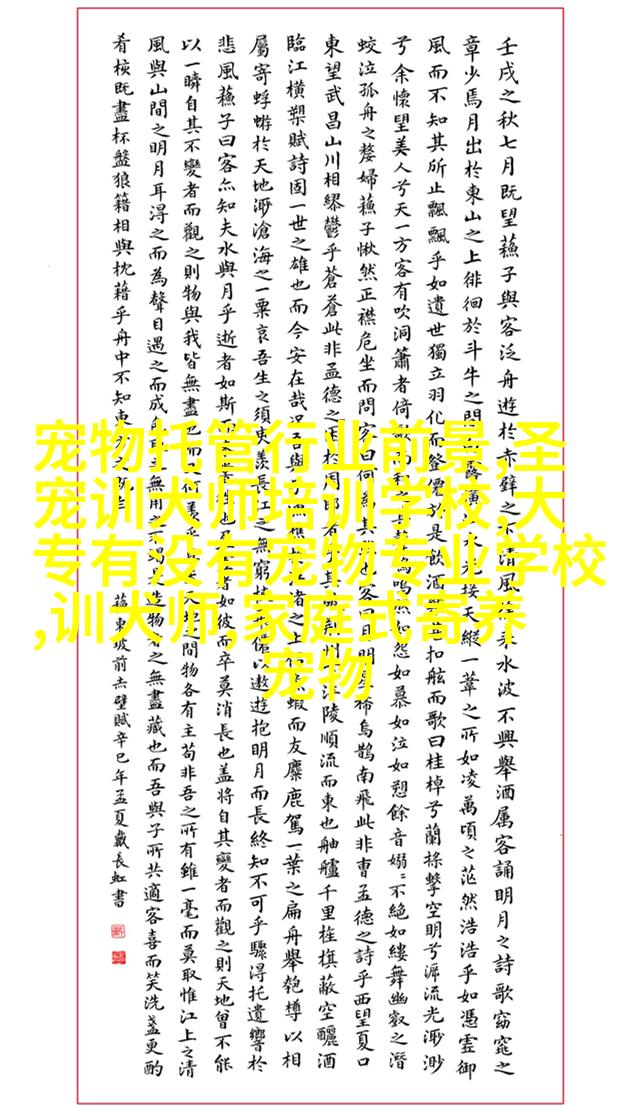 壬戌之秋七月既望蘓子與客泛舟遊於赤壁之下清風徐來水波不興舉酒属客誦明月之詩歌窈窕之
章少焉月出於東山之上徘徊於斗牛之間露橫水光接天縱一葦之所如凌萬頃之茫然浩浩乎如憑虛御
風而不知其所止飄飄乎如遺世獨立羽化而登僊於是飲酒樂甚扣舷而歌曰桂棹兮蘭槳擊空明兮泝流光渺渺
兮余懷望美人兮天一方客有吹洞簫者倚歌而和之其聲嗚嗚然如怨如慕如泣如愬餘音嫋〻不絕如縷舞幽壑之潛
蛟泣孤舟之嫠婦蘓子愀然正襟危坐而問客曰何為其然也客曰月明星稀烏鵲南飛此非曹孟德之詩乎西望夏口
東望武昌山川相繆鬱乎蒼蒼此非孟德之困於周郎者乎其破荊州下江陵順流而東也舳艫千里旌旗蔽空釃酒
臨江橫槊賦詩固一世之雄也而今安在哉况吾與子漁樵於江渚之上侶魚蝦而友麋鹿駕一葉之扁舟舉匏樽以相
屬寄蜉蝣於天地渺滄海之一粟哀吾生之須臾羨長江之無窮挾飛僊以遨遊抱明月而長終知不可乎驟得托遺響於
悲風蘓子曰客亦知夫水與月乎逝者如斯而未嘗往也盈虛者如彼而卒莫消長也盖將自其變者而觀之則天地曾不能
以一瞬自其不變者而觀之則物與我皆無盡也而又何羨乎且夫天地之間物各有主苟非吾之所有雖一毫而莫取惟江上之清
風與山間之明月耳得之而為聲目遇之而成色取之無用之不竭是造物者之無盡藏也而吾與子所共適客喜而笑洗盞更酌
肴核既盡杯盤狼籍相與枕藉乎舟中不知東方之既白
蘓東坡前赤壁賦辛巳年孟夏戴長虹書
宠物托管行业前景,圣
宠训犬师培训学校,大
专有没有宠物专业学校
,训犬师,家庭式寄养
宠物